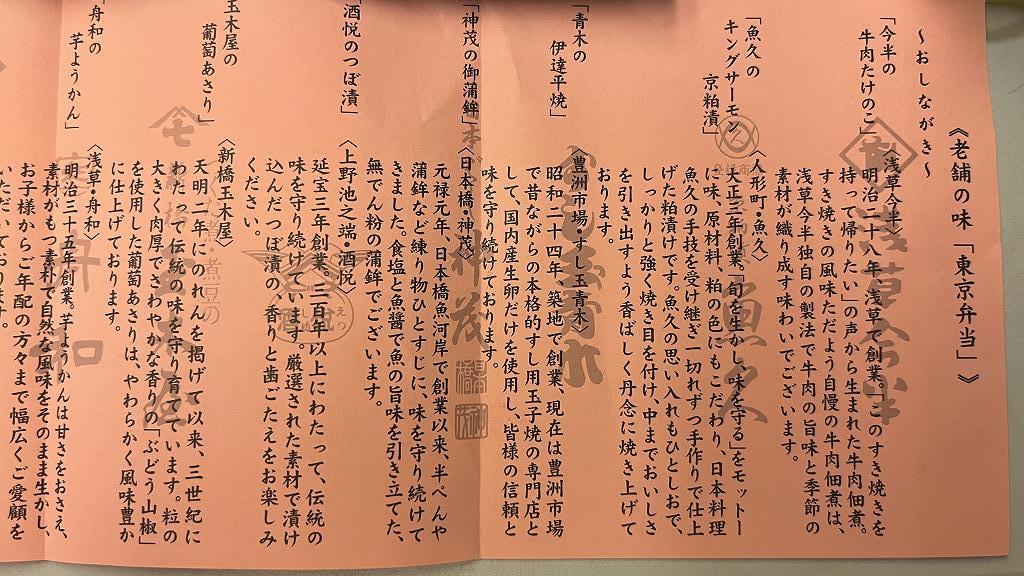 《老舗の味「東京弁当」》
～おしながき～
「今半の
牛肉たけのこ」
〈浅草今半〉
明治二十八年、浅草で創業。「このすき焼きを
持って帰りたい」の声から生まれた牛肉佃煮。
すき焼きの風味ただよう自慢の牛肉佃煮は、
浅草今半独自の製法で牛肉の旨味と季節の
素材が織り成す味わいでございます。
「魚久の
キングサーモン
京粕漬」
〈人形町・魚久〉
大正三年創業。「旬を生かし、味を守る」をモットー
に味、原材料、粕の色にもこだわり、日本料理
魚久の手技を受け継ぎ一切れずつ手作りで仕上
げた粕漬けです。魚久の思い入れもひとしおで、
しっかりと強く焼き目を付け、中までおいしさ
を引き出すよう香ばしく丹念に焼き上げて
おります。
「青木の
伊達平焼」
〈豊洲市場・すし玉青木〉
昭和二十四年、築地で創業、現在は豊洲市場
で昔ながらの本格的すし用玉子焼の専門店と
して、国内産生卵だけを使用し、皆様の信頼と
味を守り続けております。
「神茂の御蒲鉾」
〈日本橋・神茂〉
元禄元年、日本橋魚河岸で創業以来、半ぺんや
蒲鉾など練り物ひとすじに、味を守り続けて
きました。食塩と魚醤で魚の旨味を引き立てた、
無でん粉の蒲鉾でございます。
「酒悦のつぼ漬」
〈上野池之端・酒悦〉
延宝三年創業。三百年以上にわたって、伝統の
味を守り続けています。厳選された素材で漬け
込んだつぼ漬の、香りと歯ごたえをお楽しみ
ください。
玉木屋の
葡萄あさり」
〈新橋玉木屋〉
天明二年にのれんを掲げて以来、三世紀に
わたって伝統の味を守り育てています。粒の
大きく肉厚でさわやかな香りの「ぶどう山椒」
を使用した葡萄あさりは、やわらかく風味豊か
に仕上げております。
「舟和の
芋ようかん」
〈浅草・舟和〉
明治三十五年創業。芋ようかんは甘さをおさえ、
素材がもつ素朴で自然な風味をそのまま生かし、
お子様からご年配の方々まで幅広くご愛顧を
いただいております。